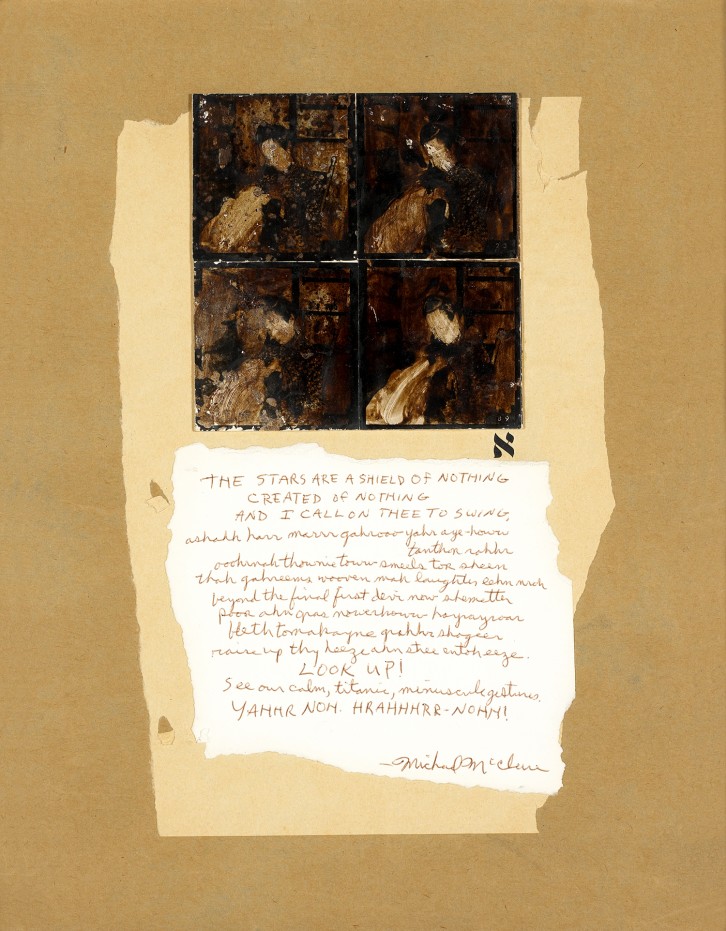 THE STARS ARE A SHIELD OF NOTHING
CREATED OF NOTHING
AND I CALL ON THEE TO SWING,
ashadh harr marrr gahrooo yahr aye-howw
tanthor rahhr
oohrmah thownie toww smeels tor sheen
thah gahreems wooven mah laughter eehn
beyond the final first devi now shemetter
poor ahn gras nowerhoww hayrayroar
bleth tomakayne grahhr shageer
raise up thy heeze ahn
LOOK UP!
See our calm, titanic, minuscule gestures.
YAHHR NOH. HRAHHHRR-NOHH!
–Michael McClure